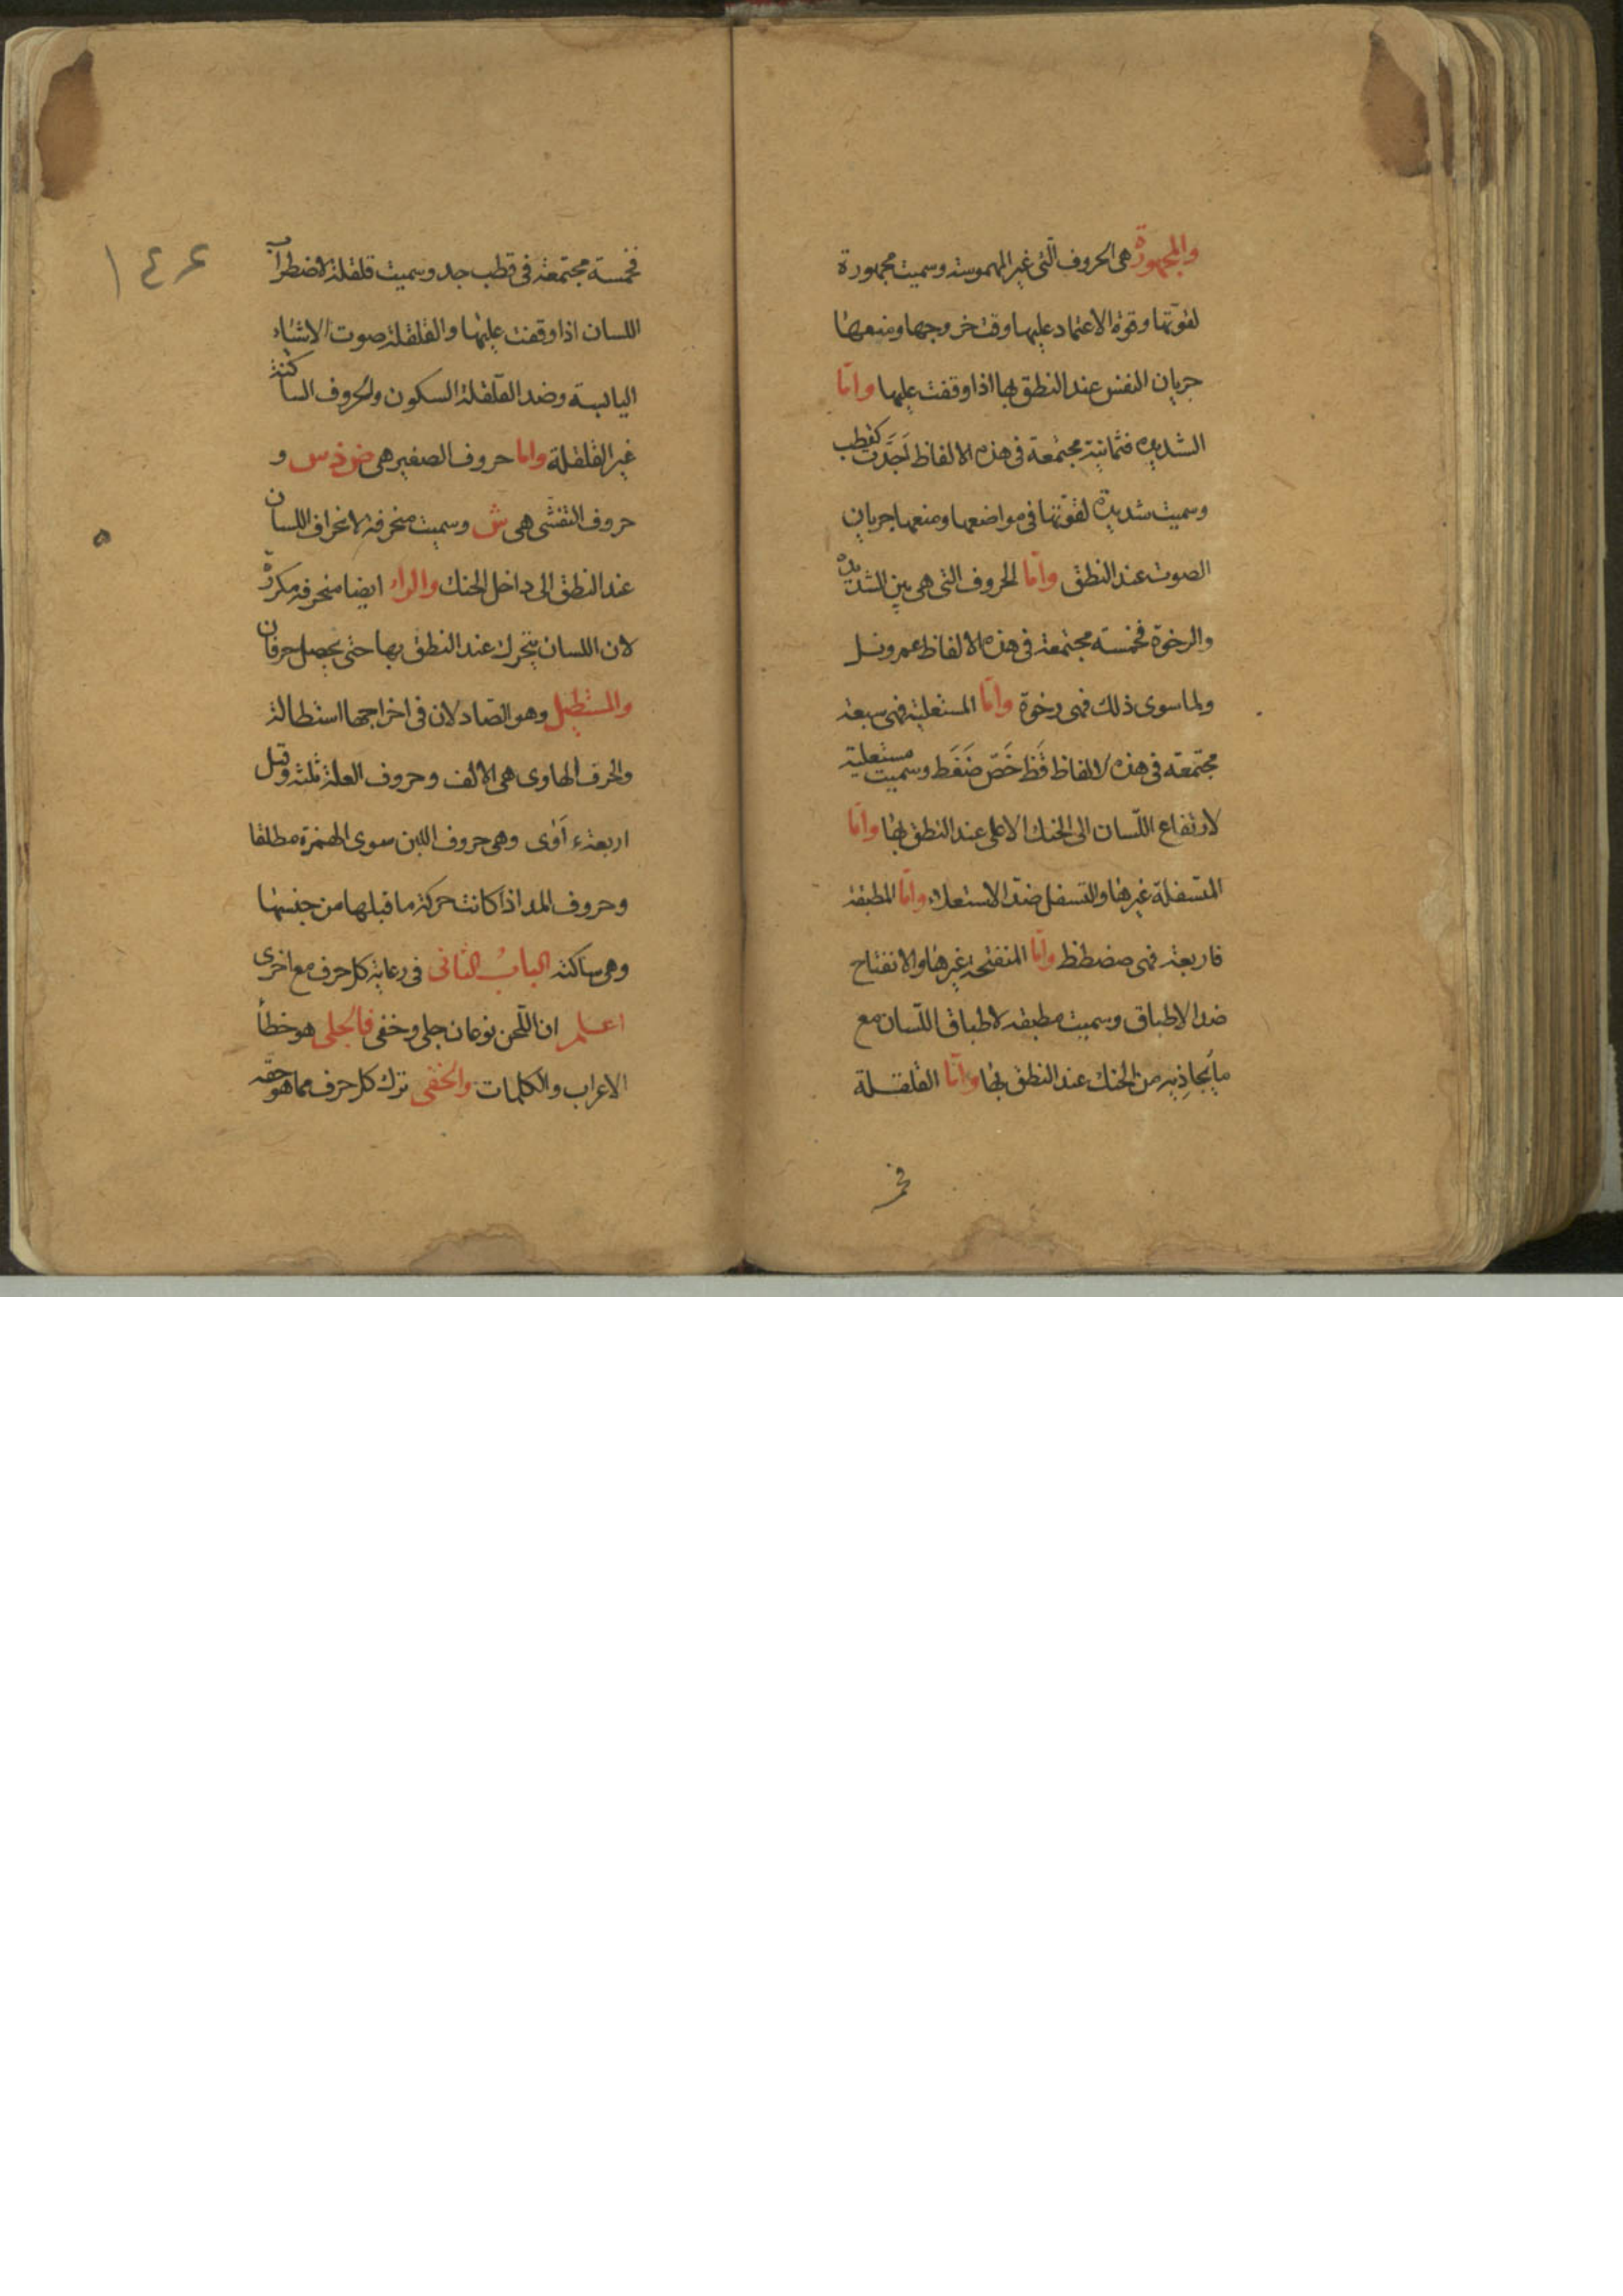 والمجهورة هى الحروف التى غير المهموسة وسميت مجهورة
لقوتها وقوة الاعتماد عليها وقت خروجها ومنعها
جريان النفس عند النطق بها اذا وقفت عليها واما
الشديدة فثمانية مجتمعة فى هذه الالفاظ اَجَدَّت كقطب
وسميت شديدة لقوتها فى مواضعها ومنعها جريان
الصوت عند النطق واما الحروف التى هى بين الشديدة
والرخوة فخمسة مجتمعة فى هذه الالفاظ عمرونل
ولما سوى ذلك فهى رخوة واما المستعلية فهى سبعة
مجتمعة فى هذه الالفاظ قَظ خَصّ ضَغَط وسميت مستعلية
لارتفاع اللّسان الى الحنك الاعلى عند النطق بها واما
المتسفلة غيرها والتسفل ضد الاستعلاء واما المطبقة
فاربعة فهى صضطظ واما المنفتحة غيرها والانفتاح
ضد الاطباق وسميت مطبقة لاطباق اللّسان مع
ما يُحاذِيه من الحنك عند النطق بها واما القلقلة
فخمـ
١٤٦
فخمسة مجتمعة فى قطب جد وسميت قلقلة لاضطراب
اللسان اذا وقفت عليها والقلقلة صوت الاشياء
اليابسة وضد القلقلة السكون والحروف الساكنة
غير القلقلة واما حروف الصفير هى و
حروف التفشى هى ش وسميت منحرفة لانحراف اللسان
عند النطق الى داخل الحنك والراء ايضا منحرفة مكررة
لان اللسان يتحرك عند النطق بها حتى يحصل حرفان
والمستطيل وهو الضاد لان فى اخراجها استطالة
والحرف الهاوى هى الالف وحروف العلة ثلثة وقيل
اربعة ء اَوى وهى حروف اللين سوى الهمزة مطلقا
وحروف المد اذا كانت حركة ما قبلها من جنسها
وهى ساكنة البابُ الثانى فى رعاية كل حرف مع اخرى
اعلم ان اللّحن نوعان جلى وخفى فالجلى هو خطأ
الاعراب والكلمات والخفى ترك كل حرف مما هو حقه